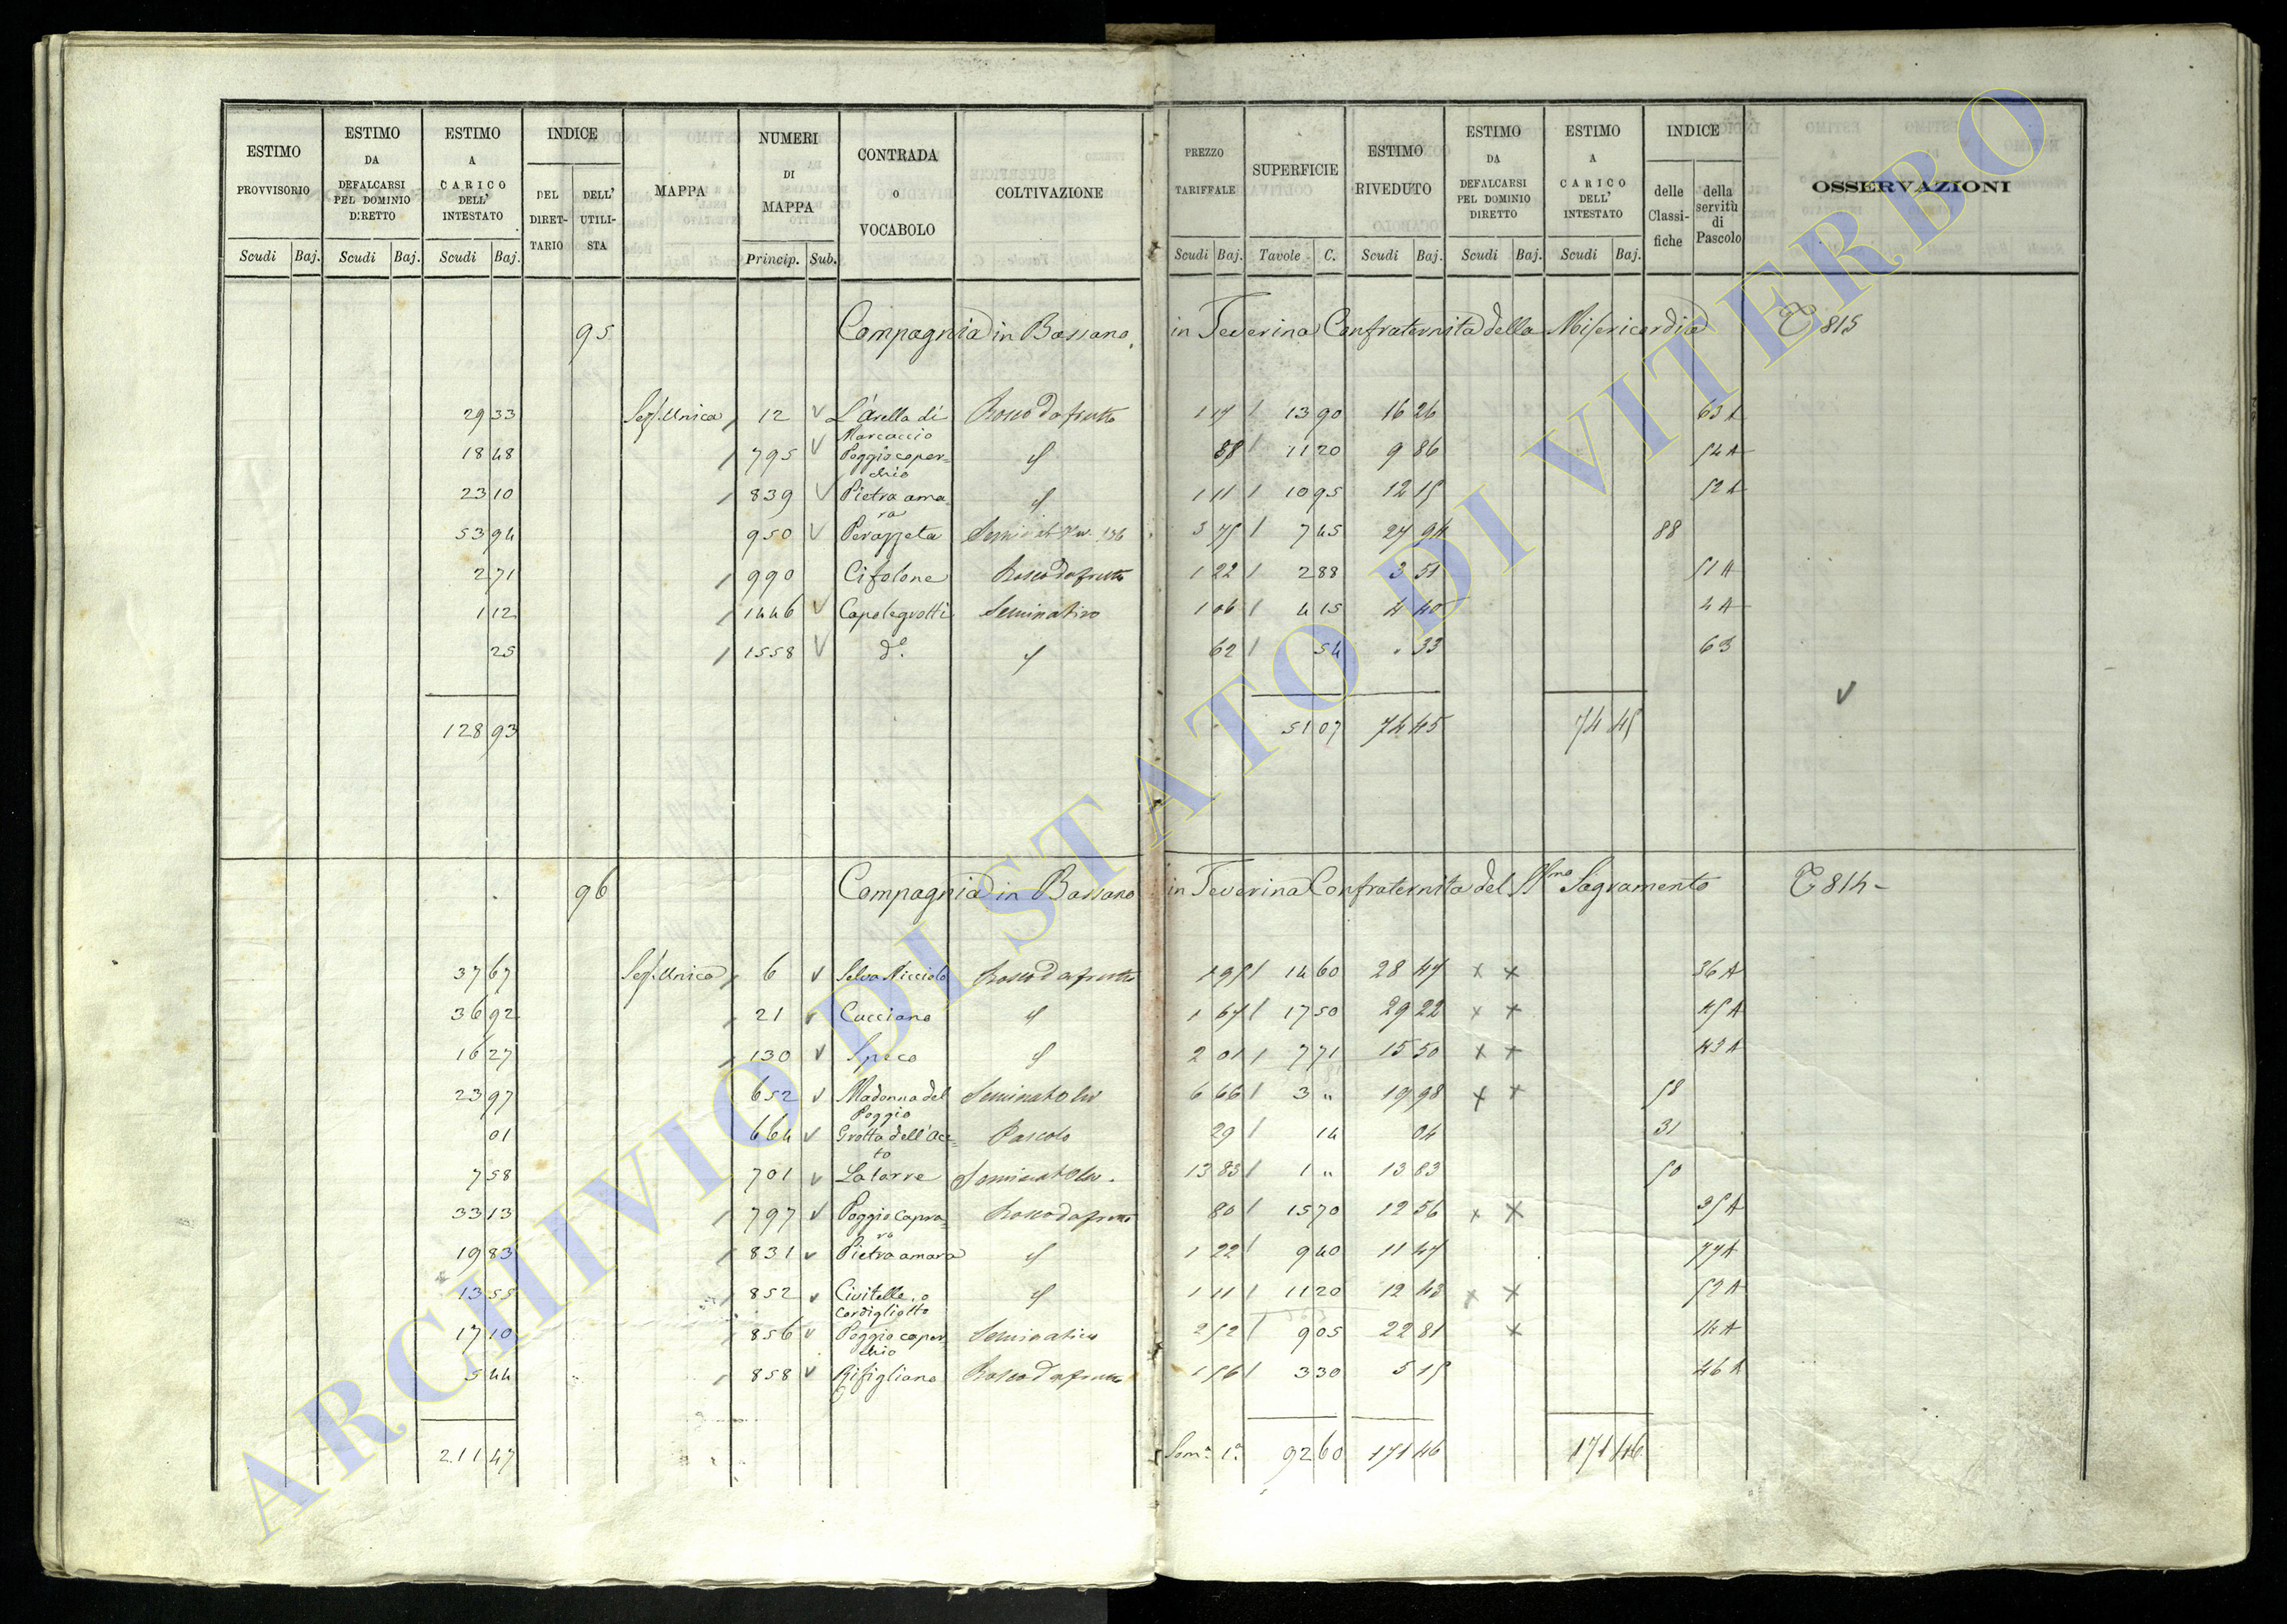 ESTIMO PROVVISORIO Scudi Baj.
ESTIMO DA DEFALCARSI PEL DOMINIO DIRETTO Scudi Baj.
ESTIMO A CARICO DELL' INTESTATO Scudi Baj.
INDICE DEL DIRET-TARIO DELL' UTILI-STA
MAPPA
NUMERI DI MAPPA Princip. Sub.
CONTRADA o VOCABOLO
COLTIVAZIONE
PREZZO TARIFFALE Scudi Baj.
SUPERFICIE Tavole C.
ESTIMO RIVEDUTO Scudi Baj.
ESTIMO DA DEFALCARSI PEL DOMINIO DIRETTO Scudi Baj.
ESTIMO A CARICO DELL' INTESTATO Scudi Baj.
INDICE delle Classi-fiche della servitù di Pascolo
OSSERVAZIONI
95 Compagnia in Bassano in Teverina Confraternita della Misericordia 815
29 33 Sez. Unica 12 L'Arella di Marcaccio Bosco da frutto 1 17 13 90 16 26 63 A
18 48 795 Poggio coper=chio 88 11 20 9 86 54 A
23 10 839 Pietra ama ra 1 11 10 95 12 15 52 A
53 94 950 Perazzeta 3 75 7 45 27 94 88
2 71 990 Cifolone Bosco da frutto 1 22 2 88 3 51 51 A
1 12 1446 Capolegrotti Seminativo 1 06 4 15 4 40 4 A
25 1558 d.o 62 54 . 33 63
128 93 51 07 74 45 74 45
96 Compagnia in Bassano in Teverina Confraternita del SSmo Sagramento 814
37 67 Sez. Unica 6 Selva Nicciola Bosco da frutto 1 95 14 60 28 47 x x 36 A
36 92 21 Cucciano 1 67 17 50 29 22 x x 45 A
16 27 130 Speco 2 01 7 71 15 50 x x 43 A
23 97 652 Madonna del Poggio Seminat Oliv 6 66 3 " 19 98 x x 58
01 664 Grotta dell'Ace=to Pascolo 29 14 04 31
7 58 701 La torre Seminat Oliv. 13 83 1 " 13 83 50
33 13 797 Poggio Capra ro Bosco da frutto 80 15 70 12 56 x x 35 A
19 83 831 Pietra amara 1 22 9 40 11 47 77 A
13 55 852 Civitelle, o Cordigliotto 1 11 11 20 12 43 x x 52 A
17 10 856 Poggio coper chio Seminativo 2 52 9 05 22 81 x 14 A
5 44 858 Rifigliano Bosco da frutto 1 56 3 30 5 15 46 A
211 47 Som.a 1.a 92 60 171 46 171 46
ARCHIVIO DI STATO DI VITERBO